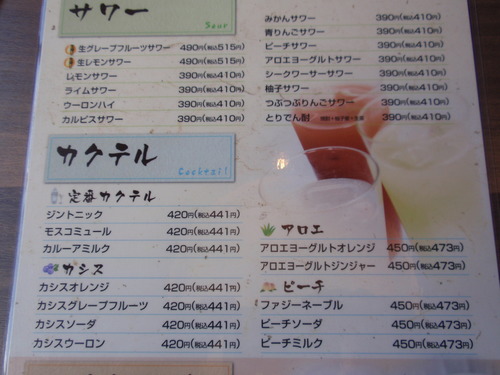 サワー
Sour
生グレープフルーツサワー 490円(税込515円)
生レモンサワー 490円(税込515円)
レモンサワー 390円(税込410円)
ライムサワー 390円(税込410円)
ウーロンハイ 390円(税込410円)
カルピスサワー 390円(税込410円)
みかんサワー 390円(税込410円)
青りんごサワー 390円(税込410円)
ピーチサワー 390円(税込410円)
アロエヨーグルトサワー 390円(税込410円)
シークワーサーサワー 390円(税込410円)
柚子サワー 390円(税込410円)
つぶつぶりんごサワー 390円(税込410円)
とりでん酎 390円(税込410円)
カクテル
Cocktail
定番カクテル
ジントニック 420円(税込441円)
モスコミュール 420円(税込441円)
カルーアミルク 420円(税込441円)
カシス
カシスオレンジ 420円(税込441円)
カシスグレープフルーツ 420円(税込441円)
カシスソーダ 420円(税込441円)
カシスウーロン 420円(税込441円)
アロエ
アロエヨーグルトオレンジ 450円(税込473円)
アロエヨーグルトジンジャー 450円(税込473円)
ピーチ
ファジーネーブル 450円(税込473円)
ピーチソーダ 450円(税込473円)
ピーチミルク 450円(税込473円)